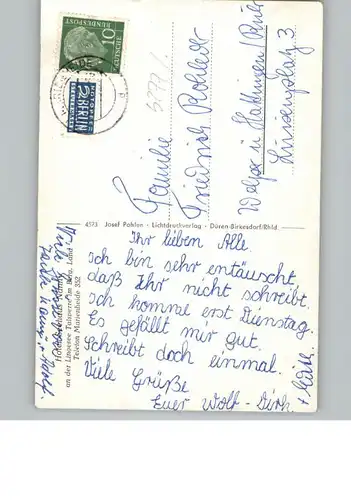 10
DEUTSCHE
BUNDESPOST
NOTOPFER
2 BERLIN
STEUERMARKE
Familie
Friedrich Rohleder
Welper ü Hattingen/Ruhr
Luisenplatz 3
4573 Josef Pohlen · Lichtdruckverlag · Düren-Birkesdorf/Rhld
an der Lingese-Talsperre im Berg. Land
Telefon Marienheide 352
Ihr lieben Alle.
Ich bin sehr entäuscht,
daß Ihr nicht schreibt.
Ich komme erst Dienstag.
Es gefällt mir gut.
Schreibt doch einmal.
Viele Grüße
Euer Wolf-Dirk.
Viele Grüße